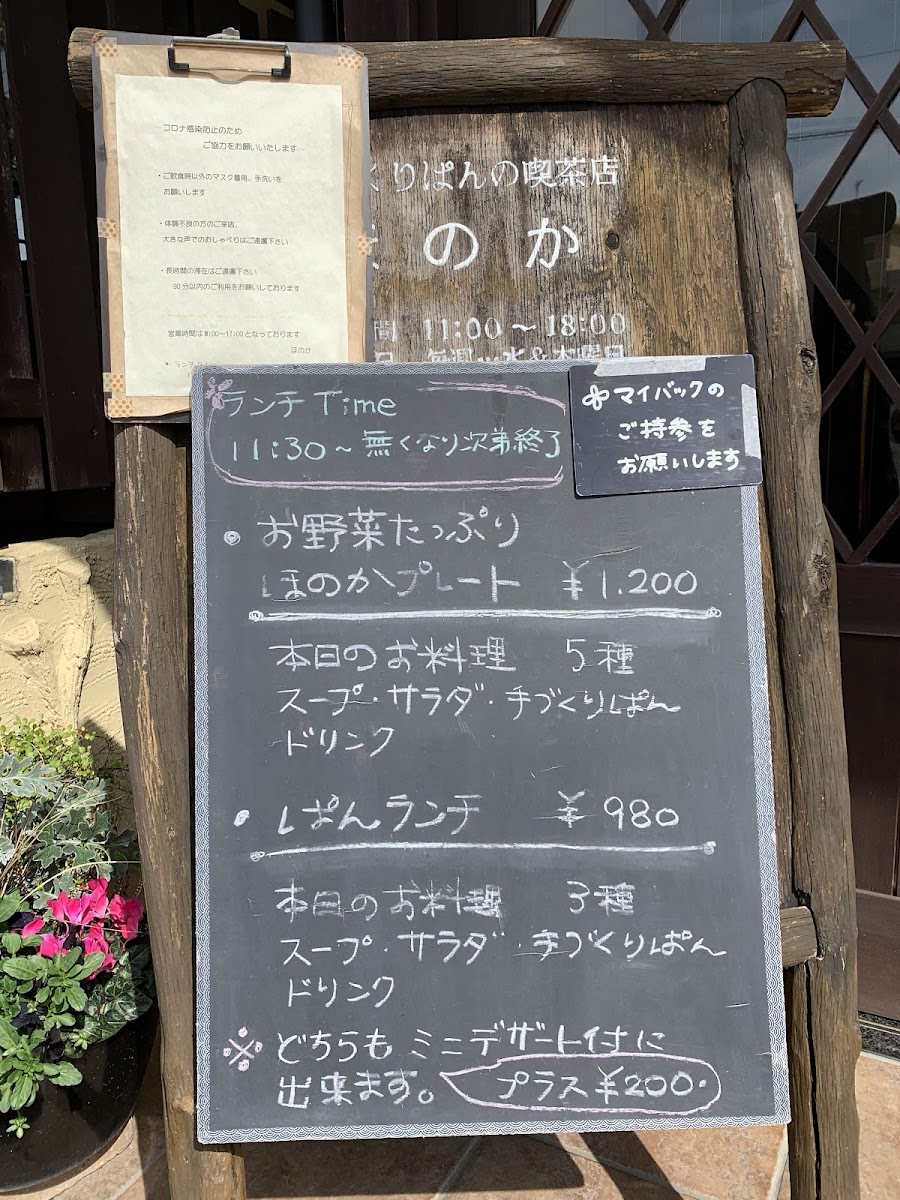 コロナ感染防止のため
ご協力をお願いいたします
・ご飲食時以外のマスク着用、手洗いを
お願いします
・体調不良の方のご来店、
大きな声でのおしゃべりはご遠慮下さい
・長時間の滞在はご遠慮下さい
90分以内のご利用をお願いしております
営業時間は11:00~17:00となっております
ほのか
くりぱんの喫茶店
のか
間 11:00~18:00
日 毎週 水&木曜日
ランチTime
11:30~無くなり次第終了
マイバックの
ご持参を
お願いします
• お野菜たっぷり
ほのかプレート ¥1.200
本日のお料理 5種
スープ・サラダ・手づくりぱん
ドリンク
• ぱんランチ ¥980
本日のお料理 3種
スープ・サラダ・手づくりぱん
ドリンク
※ どちらもミニデザート付に
出来ます。 プラス¥200.